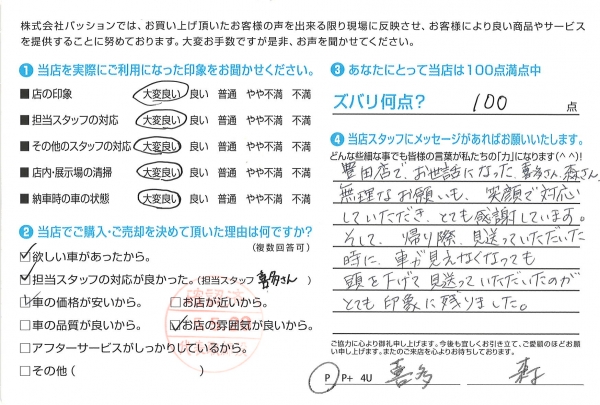 株式会社パッションでは、お買い上げ頂いたお客様の声を出来る限り現場に反映させ、お客様により良い商品やサービス
を提供することに努めております。大変お手数ですが是非、お声を聞かせてください。
① 当店を実際にご利用になった印象をお聞かせください。
■店の印象 大変良い 良い 普通 やや不満 不満
■担当スタッフの対応 大変良い 良い 普通 やや不満 不満
■その他のスタッフの対応 大変良い 良い 普通 やや不満 不満
■店内・展示場の清掃 大変良い 良い 普通 やや不満 不満
■納車時の車の状態 大変良い 良い 普通 やや不満 不満
② 当店でご購入・ご売却を決めて頂いた理由は何ですか?
(複数回答可)
☑欲しい車があったから。
☑担当スタッフの対応が良かった。(担当スタッフ 喜多さん)
☑車の価格が安いから。 □お店が近いから。
□車の品質が良いから。 ☑お店の雰囲気が良いから。
□アフターサービスがしっかりしているから。
□その他( )
③ あなたにとって当店は100点満点中
ズバリ何点? 100 点
④ 当店スタッフにメッセージがあればお願いいたします。
どんな些細な事でも皆様の言葉が私たちの「力」になります(^^)!
豊田店で、お世話になった、喜多さん、森さん、
無理なお願いも、笑顔で対応
していただき、とても感謝しています。
そして、帰り際、見送っていただいた
時に、車が見えなくなっても
頭を下げて見送っていただいたのが
とても印象に残りました。
ご協力に心より御礼申し上げます。今後も宜しくお引き立て、ご愛顧のほどお願
い申し上げます。またのご来店を心よりお待ちしております。
P P+ 4U 喜多 森